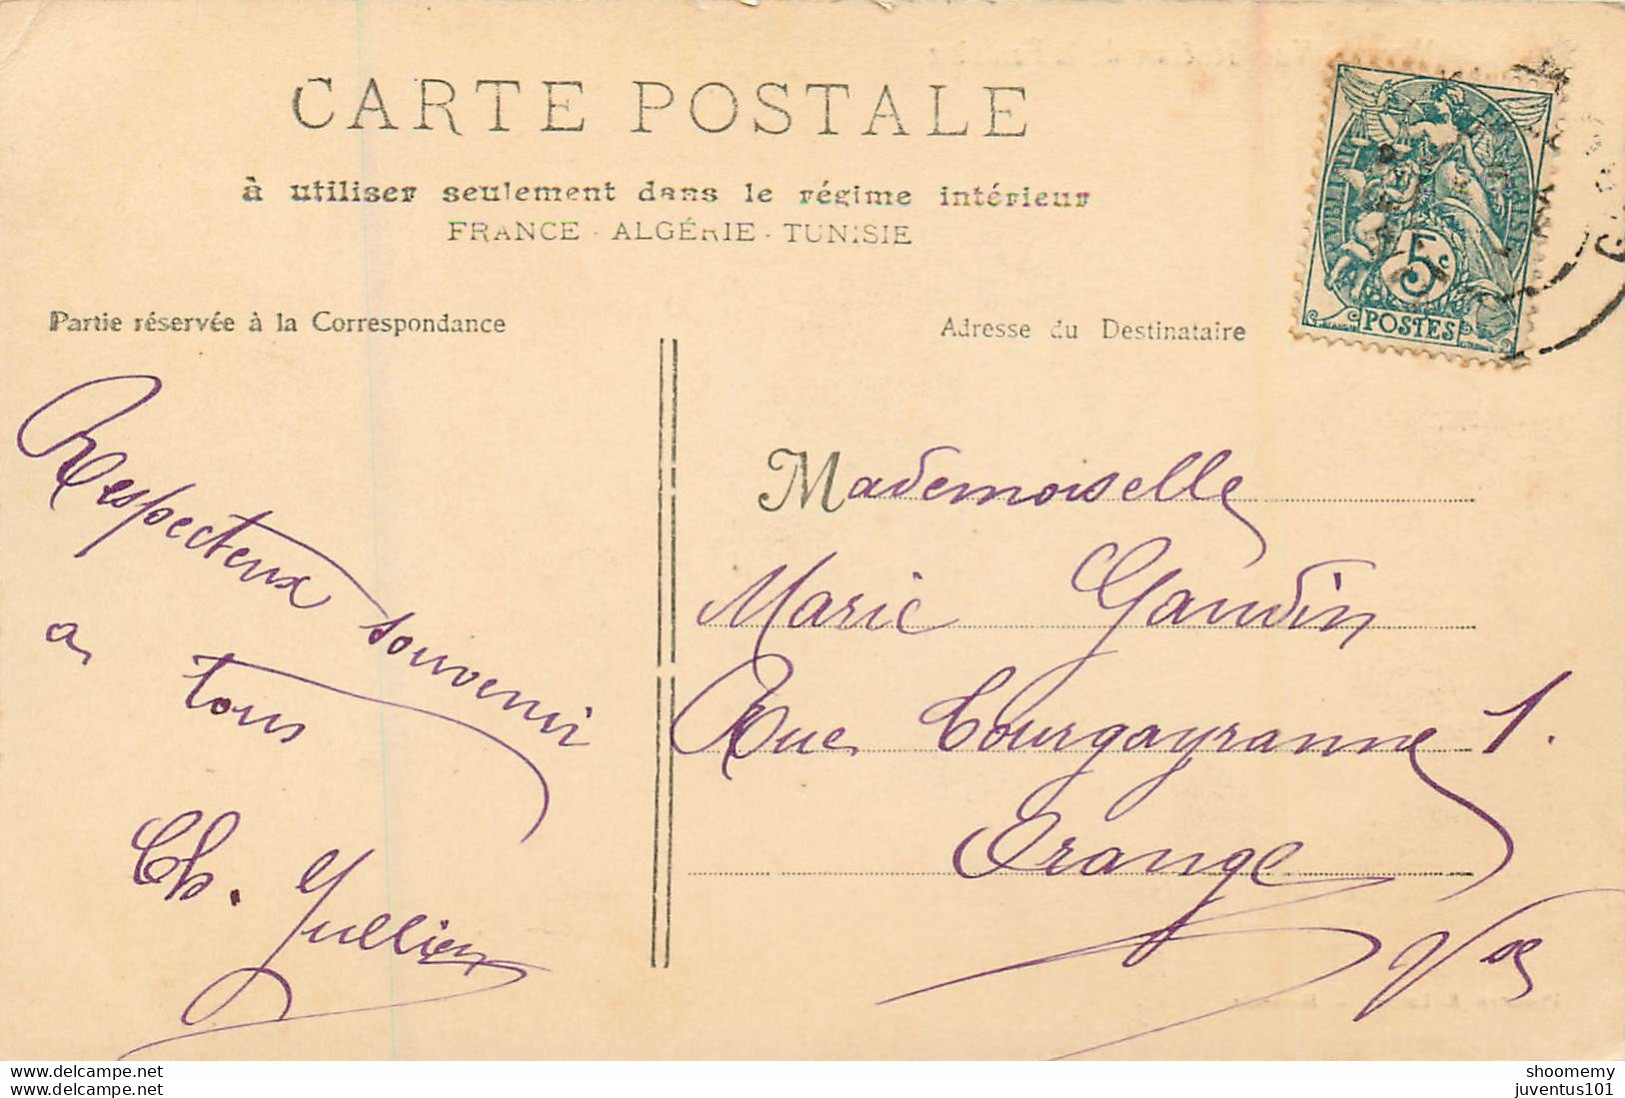 CARTE POSTALE
à utiliser seulement dans le régime intérieur
FRANCE - ALGÉRIE - TUNISIE
Partie réservée à la Correspondance
Adresse du Destinataire
5c
POSTES
Respecteux souvenir
a tous
Ch. Jullien
Mademoiselle
Marie Gaudin
Rue Bourgayranne 1.
Orange
Vse
Recto verso
Recto verso
shoomemy
juventus101